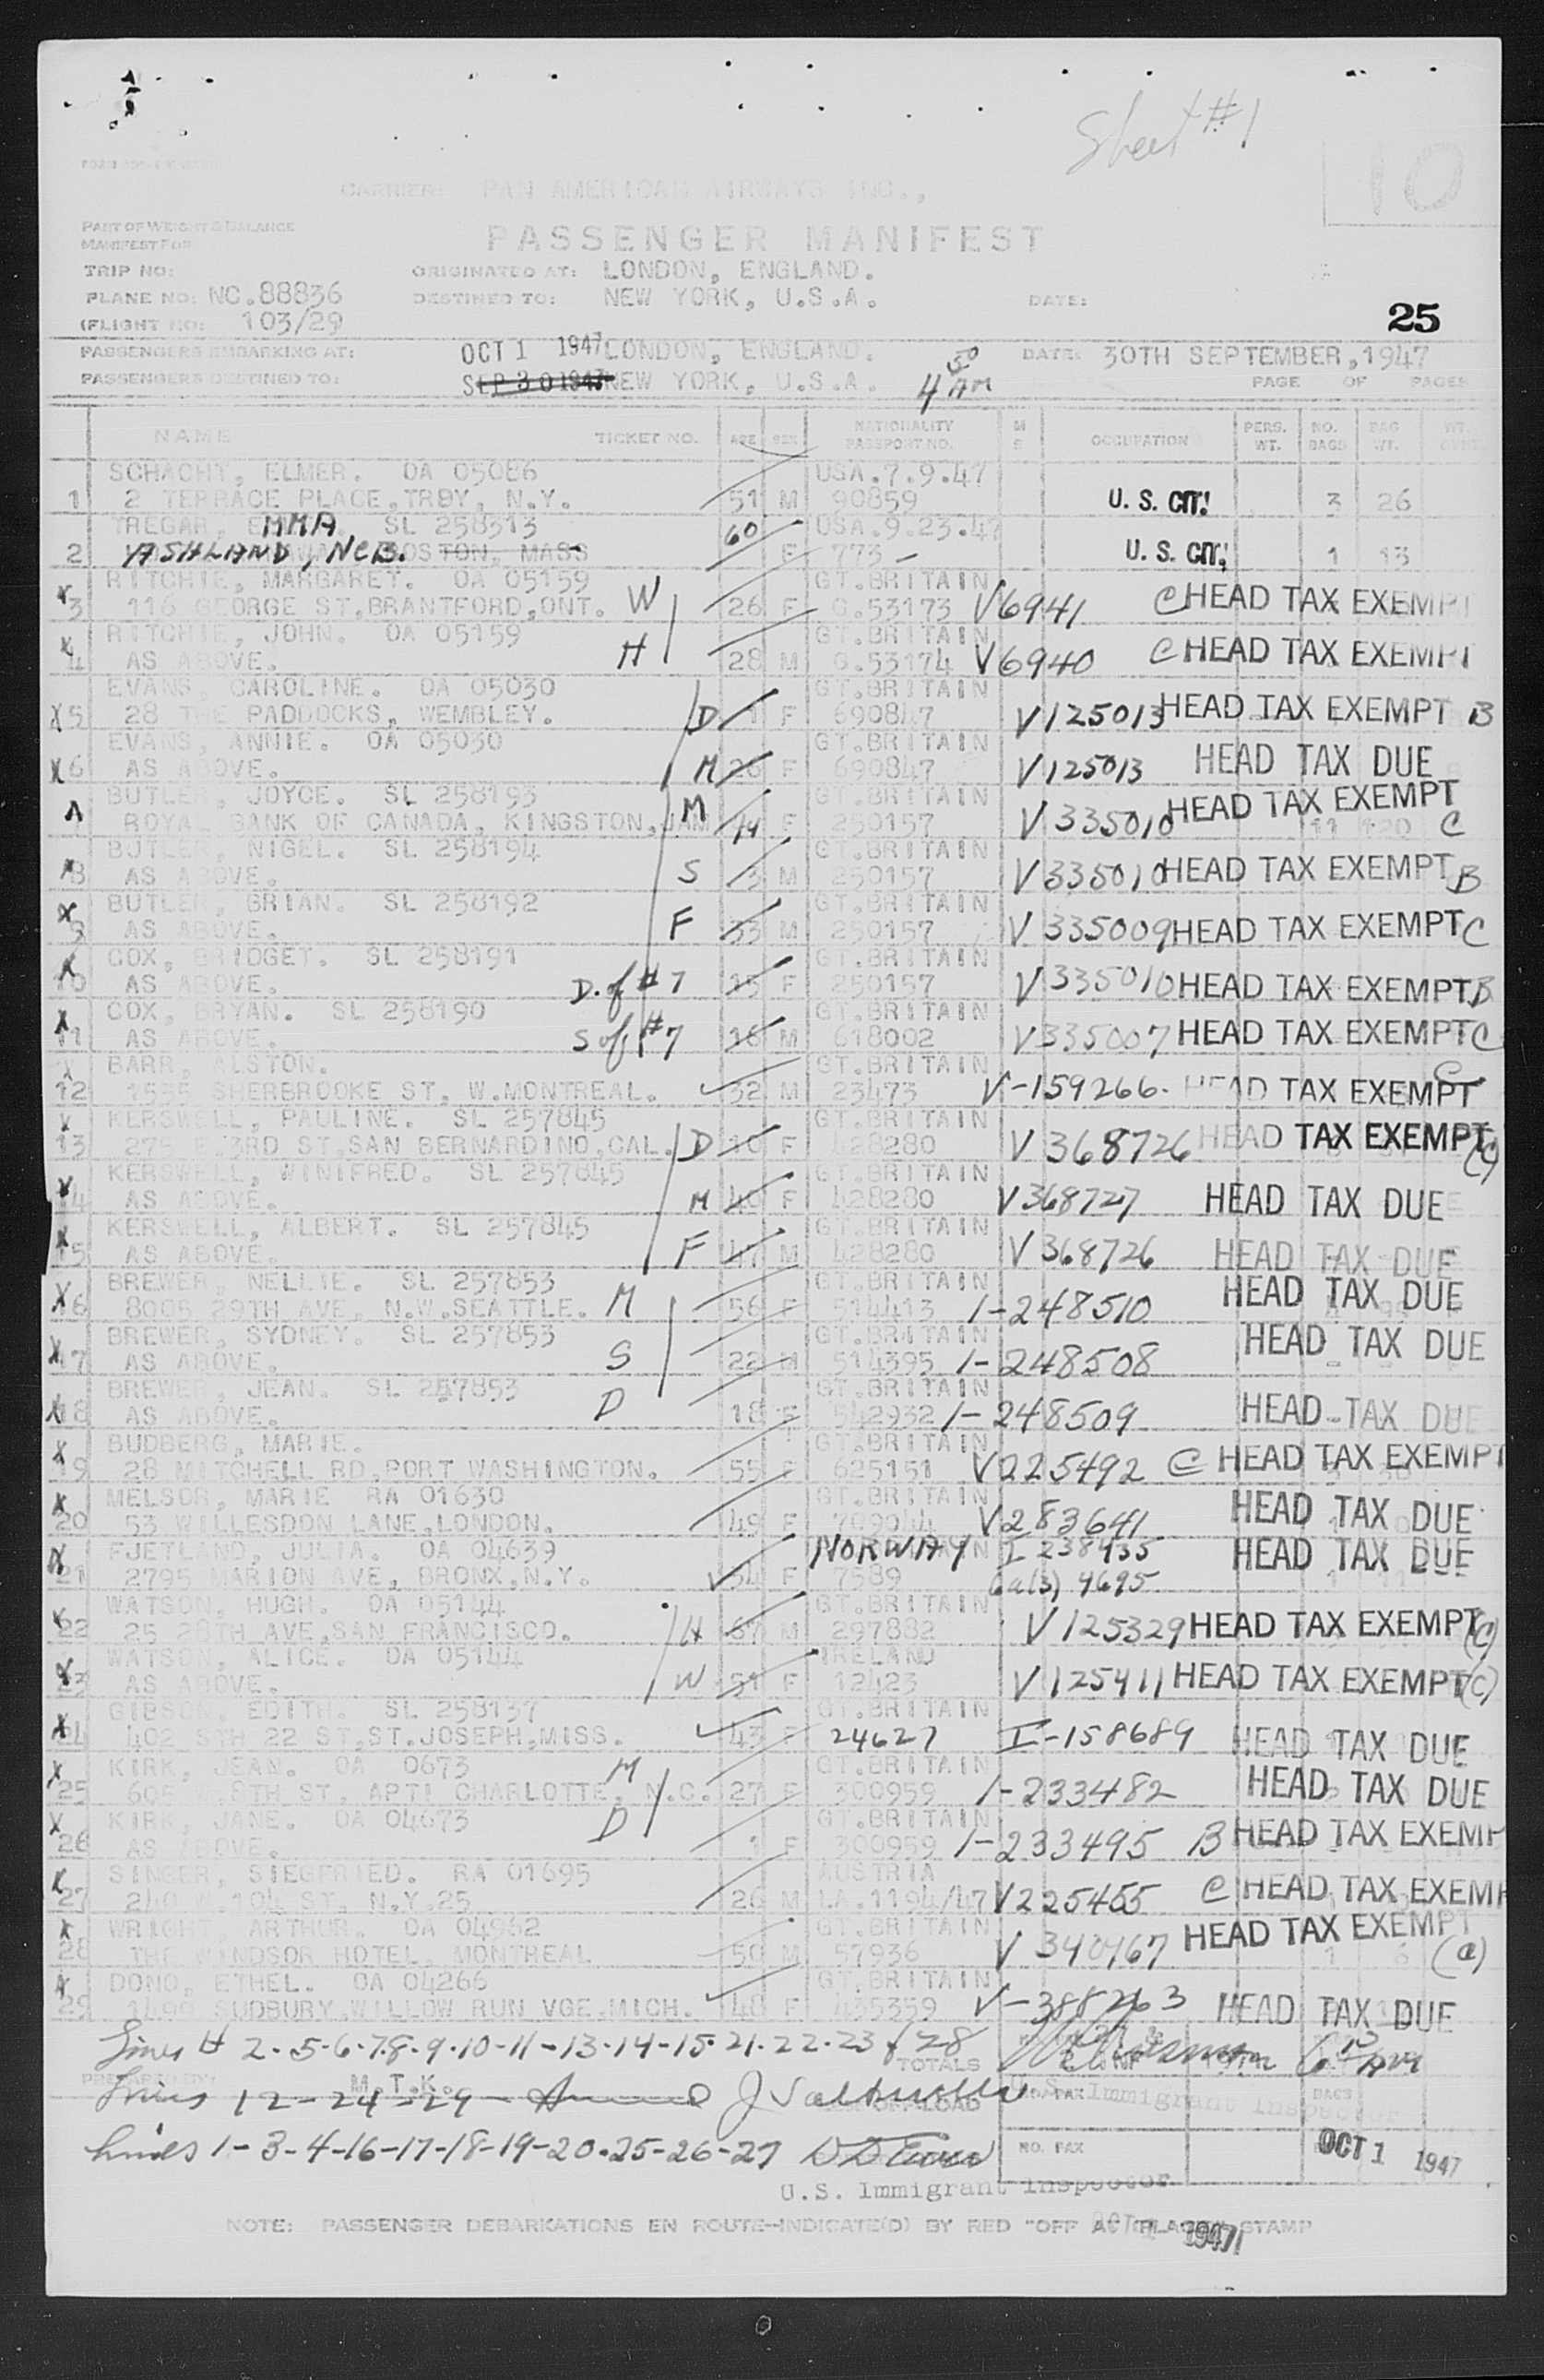 Sheet #1
10
CARRIER: PAN AMERICAN AIRWAYS INC.,
PART OF WEIGHT & BALANCE
MANIFEST FOR
PASSENGER MANIFEST
TRIP NO: ORIGINATED AT: LONDON, ENGLAND.
PLANE NO: NC.88836 DESTINED TO: NEW YORK, U.S.A. DATE:
(FLIGHT NO: 103/29 25
PASSENGERS EMBARKING AT: OCT 1 1947 LONDON, ENGLAND. DATE: 30TH SEPTEMBER, 1947
PASSENGERS DESTINED TO: SEP 30 1947 NEW YORK, U.S.A. 4 50 AM PAGE OF PAGES
NAME TICKET NO. AGE SEX NATIONALITY PASSPORT NO. M S OCCUPATION PERS. WT. NO. BAGS BAG WT.
SCHACHT, ELMER. OA 05086 USA.7.9.47
1 2 TERRACE PLACE, TROY, N.Y. 51 M 90859 U. S. CIT. 3 26
TREGAR, EMMA SL 258313 60 USA.9.23.47
2 ASHLAND, NEB. BOSTON, MASS F 773 - U. S. CIT. 1 13
RITCHIE, MARGARET. OA 05159 GT.BRITAIN
3 116 GEORGE ST, BRANTFORD, ONT. W 26 F G.53173 V6941 C HEAD TAX EXEMPT
RITCHIE, JOHN. OA 05159 GT.BRITAIN
4 AS ABOVE. H 28 M G.53174 V6940 C HEAD TAX EXEMPT
EVANS, CAROLINE. OA 05030 GT.BRITAIN
5 28 THE PADDOCKS, WEMBLEY. D 1 F 690847 V125013 HEAD TAX EXEMPT B
EVANS, ANNIE. OA 05030 GT.BRITAIN
6 AS ABOVE. M 26 F 690847 V125013 HEAD TAX DUE
BUTLER, JOYCE. SL 258193 GT.BRITAIN
ROYAL BANK OF CANADA, KINGSTON, JAM M 44 F 250157 V335010 HEAD TAX EXEMPT C
BUTLER, NIGEL. SL 258194 GT.BRITAIN
8 AS ABOVE. S 3 M 250157 V335010 HEAD TAX EXEMPT B
BUTLER, BRIAN. SL 258192 GT.BRITAIN
9 AS ABOVE. F 33 M 250157 V 335009 HEAD TAX EXEMPT C
COX, BRIDGET. SL 258191 GT.BRITAIN
10 AS ABOVE. D. of #7 15 F 250157 V 335010 HEAD TAX EXEMPT B
COX, BRYAN. SL 258190 GT.BRITAIN
11 AS ABOVE. S of #7 16 M 618002 V335007 HEAD TAX EXEMPT C
BARR, ALSTON. GT.BRITAIN
12 1535 SHERBROOKE ST, W.MONTREAL. 32 M 23473 V-159266. HEAD TAX EXEMPT C
KERSWELL, PAULINE. SL 257845 GT.BRITAIN
13 275 E 3RD ST, SAN BERNARDINO, CAL. D 10 F 428280 V 368726 HEAD TAX EXEMPT (C)
KERSWELL, WINIFRED. SL 257845 GT.BRITAIN
14 AS ABOVE. M 40 F 428280 V368727 HEAD TAX DUE
KERSWELL, ALBERT. SL 257845 GT.BRITAIN
15 AS ABOVE. F 47 M 428280 V 368726 HEAD TAX DUE
BREWER, NELLIE. SL 257853 GT.BRITAIN
16 8005 29TH AVE, N.W.SEATTLE. M 56 F 514413 1-248510 HEAD TAX DUE
BREWER, SYDNEY. SL 257853 GT.BRITAIN
17 AS ABOVE. S 22 M 514395 1-248508 HEAD TAX DUE
BREWER, JEAN. SL 257853 GT.BRITAIN
18 AS ABOVE. D 18 F 542932 1-248509 HEAD TAX DUE
BUDBERG, MARIE. GT.BRITAIN
19 28 MITCHELL RD, PORT WASHINGTON. 55 F 625151 V225492 C HEAD TAX EXEMPT
MELSOR, MARIE RA 01630 GT.BRITAIN
20 53 WILLESDON LANE, LONDON. 49 F 709044 V283641 HEAD TAX DUE
FJETLAND, JULIA. OA 04639 NORWAY I 238435 HEAD TAX DUE
21 2795 MARION AVE, BRONX, N.Y. 54 F 7589 6a(3) 9695
WATSON, HUGH. OA 05144 GT.BRITAIN
22 25 28TH AVE, SAN FRANCISCO. H 67 M 297882 V125329 HEAD TAX EXEMPT (C)
WATSON, ALICE. OA 05144 IRELAND
23 AS ABOVE. W 51 F 12423 V125411 HEAD TAX EXEMPT (C)
GIBSON, EDITH. SL 258137 GT.BRITAIN
24 402 5TH 22 ST, ST.JOSEPH, MISS. 43 F 24627 I-158689 HEAD TAX DUE
KIRK, JEAN. OA 0673 M GT.BRITAIN
25 605 W. 8TH ST. APT1 CHARLOTTE, N.C. 27 F 300959 1-233482 HEAD TAX DUE
KIRK, JANE. OA 04673 D GT.BRITAIN
26 AS ABOVE. 1 F 300959 1-233495 B HEAD TAX EXEMPT
SINGER, SIEGFRIED. RA 01695 AUSTRIA
27 240 W 104 ST, N.Y.25 26 M LA.1194/47 V225455 C HEAD TAX EXEMPT
WRIGHT, ARTHUR. OA 04962 GT.BRITAIN
28 THE WINDSOR HOTEL, MONTREAL 50 M 57936 V 340467 HEAD TAX EXEMPT (a)
DOND, ETHEL. OA 04266 GT.BRITAIN
29 1499 SUDBURY, WILLOW RUN VGE.MICH. 48 F 435359 V-388263 HEAD TAX DUE
Lines # 2-5-6-7-8-9-10-11-13-14-15-21-22-23 & 28
TOTALS
PREPARED BY: M.T.K.
Lines 12-24-29
U.S. Immigrant Inspector
Lines 1-3-4-16-17-18-19-20-25-26-27
NO. PAX BAGS
OCT 1 1947
U.S. Immigrant Inspector
NOTE: PASSENGER DEBARKATIONS EN ROUTE-INDICATE(D) BY RED "OFF AT" PLACE STAMP
OCT 1 1947